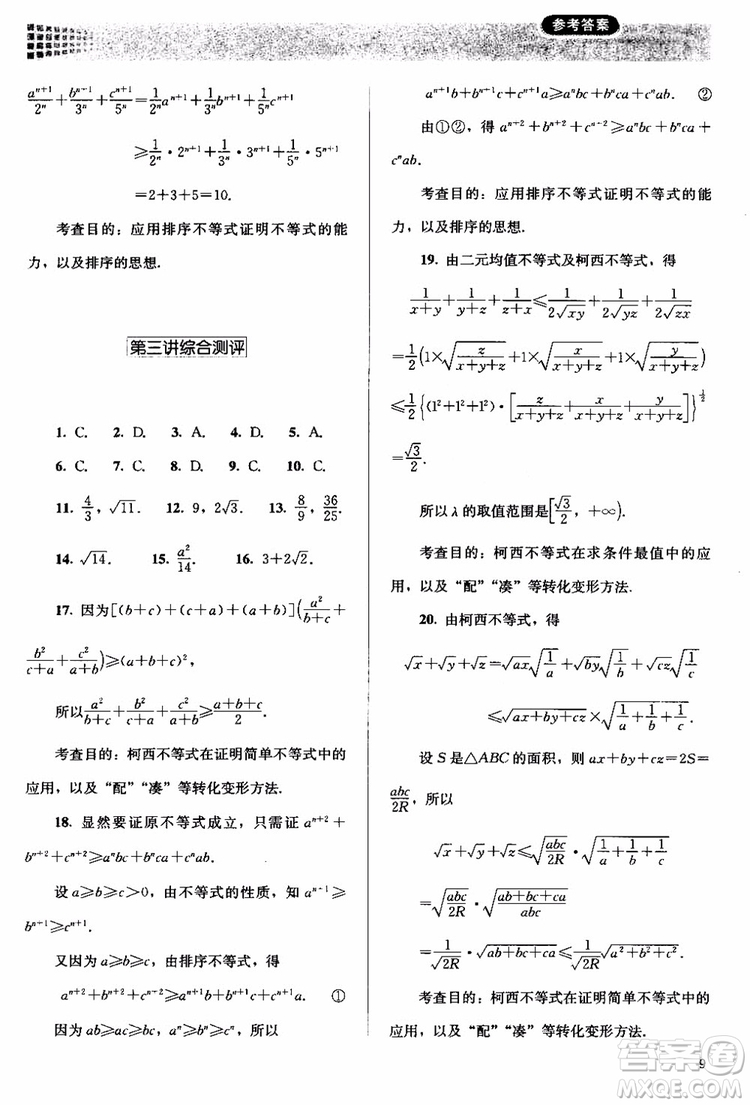 参考答案
a^{n+1}/2^n + b^{n+1}/3^n + c^{n+1}/5^n = 1/2^n a^{n+1} + 1/3^n b^{n+1} + 1/5^n c^{n+1}
≥ 1/2^n · 2^{n+1} + 1/3^n · 3^{n+1} + 1/5^n · 5^{n+1}
=2+3+5=10.
考查目的：应用排序不等式证明不等式的能
力，以及排序的思想.
第三讲综合测评
1. C. 2. D. 3. A. 4. D. 5. A.
6. C. 7. C. 8. D. 9. D. 10. C.
11. 4/3，√11. 12. 9，2√3. 13. 8/9，36/25.
14. √14. 15. a²/14. 16. 3+2√2.
17. 因为[(b+c)+(c+a)+(a+b)](a²/(b+c)+
b²/(c+a)+c²/(a+b))≥(a+b+c)²，
所以a²/(b+c)+b²/(c+a)+c²/(a+b)≥(a+b+c)/2.
考查目的：柯西不等式在证明简单不等式中的
应用，以及“配”“凑”等转化变形方法.
18. 显然要证原不等式成立，只需证 a^{n+2}+
b^{n+2}+c^{n+2}≥a^n bc+b^n ca+c^n ab.
设 a≥b≥c>0，由不等式的性质，知 a^{n+1}≥
b^{n+1}≥c^{n+1}.
又因为 a≥b≥c，由排序不等式，得
a^{n+2}+b^{n+2}+c^{n+2}≥a^{n+1}b+b^{n+1}c+c^{n+1}a. ①
因为 ab≥ac≥bc，a^n≥b^n≥c^n，所以
a^{n+1}b+b^{n+1}c+c^{n+1}a≥a^n bc+b^n ca+c^n ab. ②
由①②，得 a^{n+2}+b^{n+2}+c^{n+2}≥a^n bc+b^n ca+
c^n ab.
考查目的：应用排序不等式证明不等式的能
力，以及排序的思想.
19. 由二元均值不等式及柯西不等式，得
1/(x+y)+1/(y+z)+1/(z+x)≤1/(2√xy)+1/(2√yz)+1/(2√zx)
=1/2(1×√(z/(x+y+z))+1×√(x/(x+y+z))+1×√(y/(x+y+z)))
≤1/2{(1²+1²+1²)·[z/(x+y+z)+x/(x+y+z)+y/(x+y+z)]}^{1/2}
=√3/2.
所以 λ 的取值范围是[√3/2，+∞).
考查目的：柯西不等式在求条件最值中的应
用，以及“配”“凑”等转化变形方法.
20. 由柯西不等式，得
√x+√y+√z=√ax√(1/a)+√by√(1/b)+√cz√(1/c)
≤√(ax+by+cz)×√(1/a+1/b+1/c).
设 S 是△ABC 的面积，则 ax+by+cz=2S=
abc/2R，所以
√x+√y+√z≤√(abc/2R)·√(1/a+1/b+1/c)
=√(abc/2R)·√((ab+bc+ca)/abc)
=1/√2R·√(ab+bc+ca)≤√((a²+b²+c²)/2R).
考查目的：柯西不等式在证明简单不等式中的应
用，以及“配”“凑”等转化变形方法.
9
答案圈
MXQE.COM